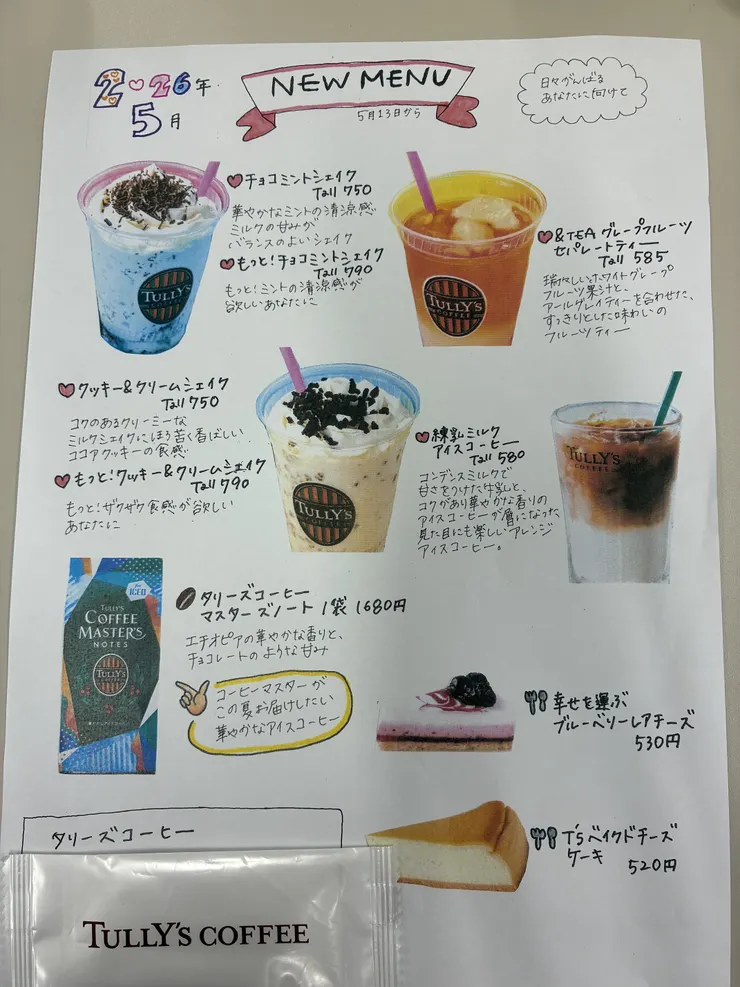 2♡26年
5月
NEW MENU
5月13日から
日々がんばる
あなたに向けて
チョコミントシェイク
Tall 750
華やかなミントの清涼感
ミルクの甘みが
バランスのよいシェイク
もっと!チョコミントシェイク
Tall 790
もっと!ミントの清涼感が
欲しいあなたに
TULLY'S
COFFEE
&TEA グレープフルーツ
セパレートティー
Tall 585
瑞々しいホワイトグレープ
フルーツ果汁と、
アールグレイティーを合わせた、
すっきりとした味わいの
フルーツティー
TULLY'S
COFFEE
クッキー&クリームシェイク
Tall 750
コクのあるクリーミーな
ミルクシェイクにほろ苦く香ばしい
ココアクッキーの食感
もっと!クッキー&クリームシェイク
Tall 790
もっと!ザクザク食感が欲しい
あなたに
TULLY'S
COFFEE
練乳ミルク
アイスコーヒー
Tall 580
コンデンスミルクで
甘さをつけた牛乳と、
コクがあり華やかな香りの
アイスコーヒーが層になった、
見た目にも楽しいアレンジ
アイスコーヒー。
TULLY'S
COFFEE
for
ICED
TULLY'S
COFFEE
MASTER'S
NOTES
TULLY'S
タリーズコーヒー
マスターズノート 1袋 1680円
エチオピアの華やかな香りと、
チョコレートのような甘み
コーヒーマスターが
この夏お届けしたい
華やかなアイスコーヒー
幸せを運ぶ
ブルーベリーレアチーズ
530円
T'sベイクドチーズ
ケーキ 520円
タリーズコーヒー
TULLY'S COFFEE